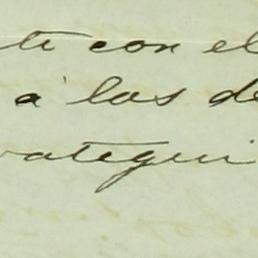 te con el
á las de
vategui